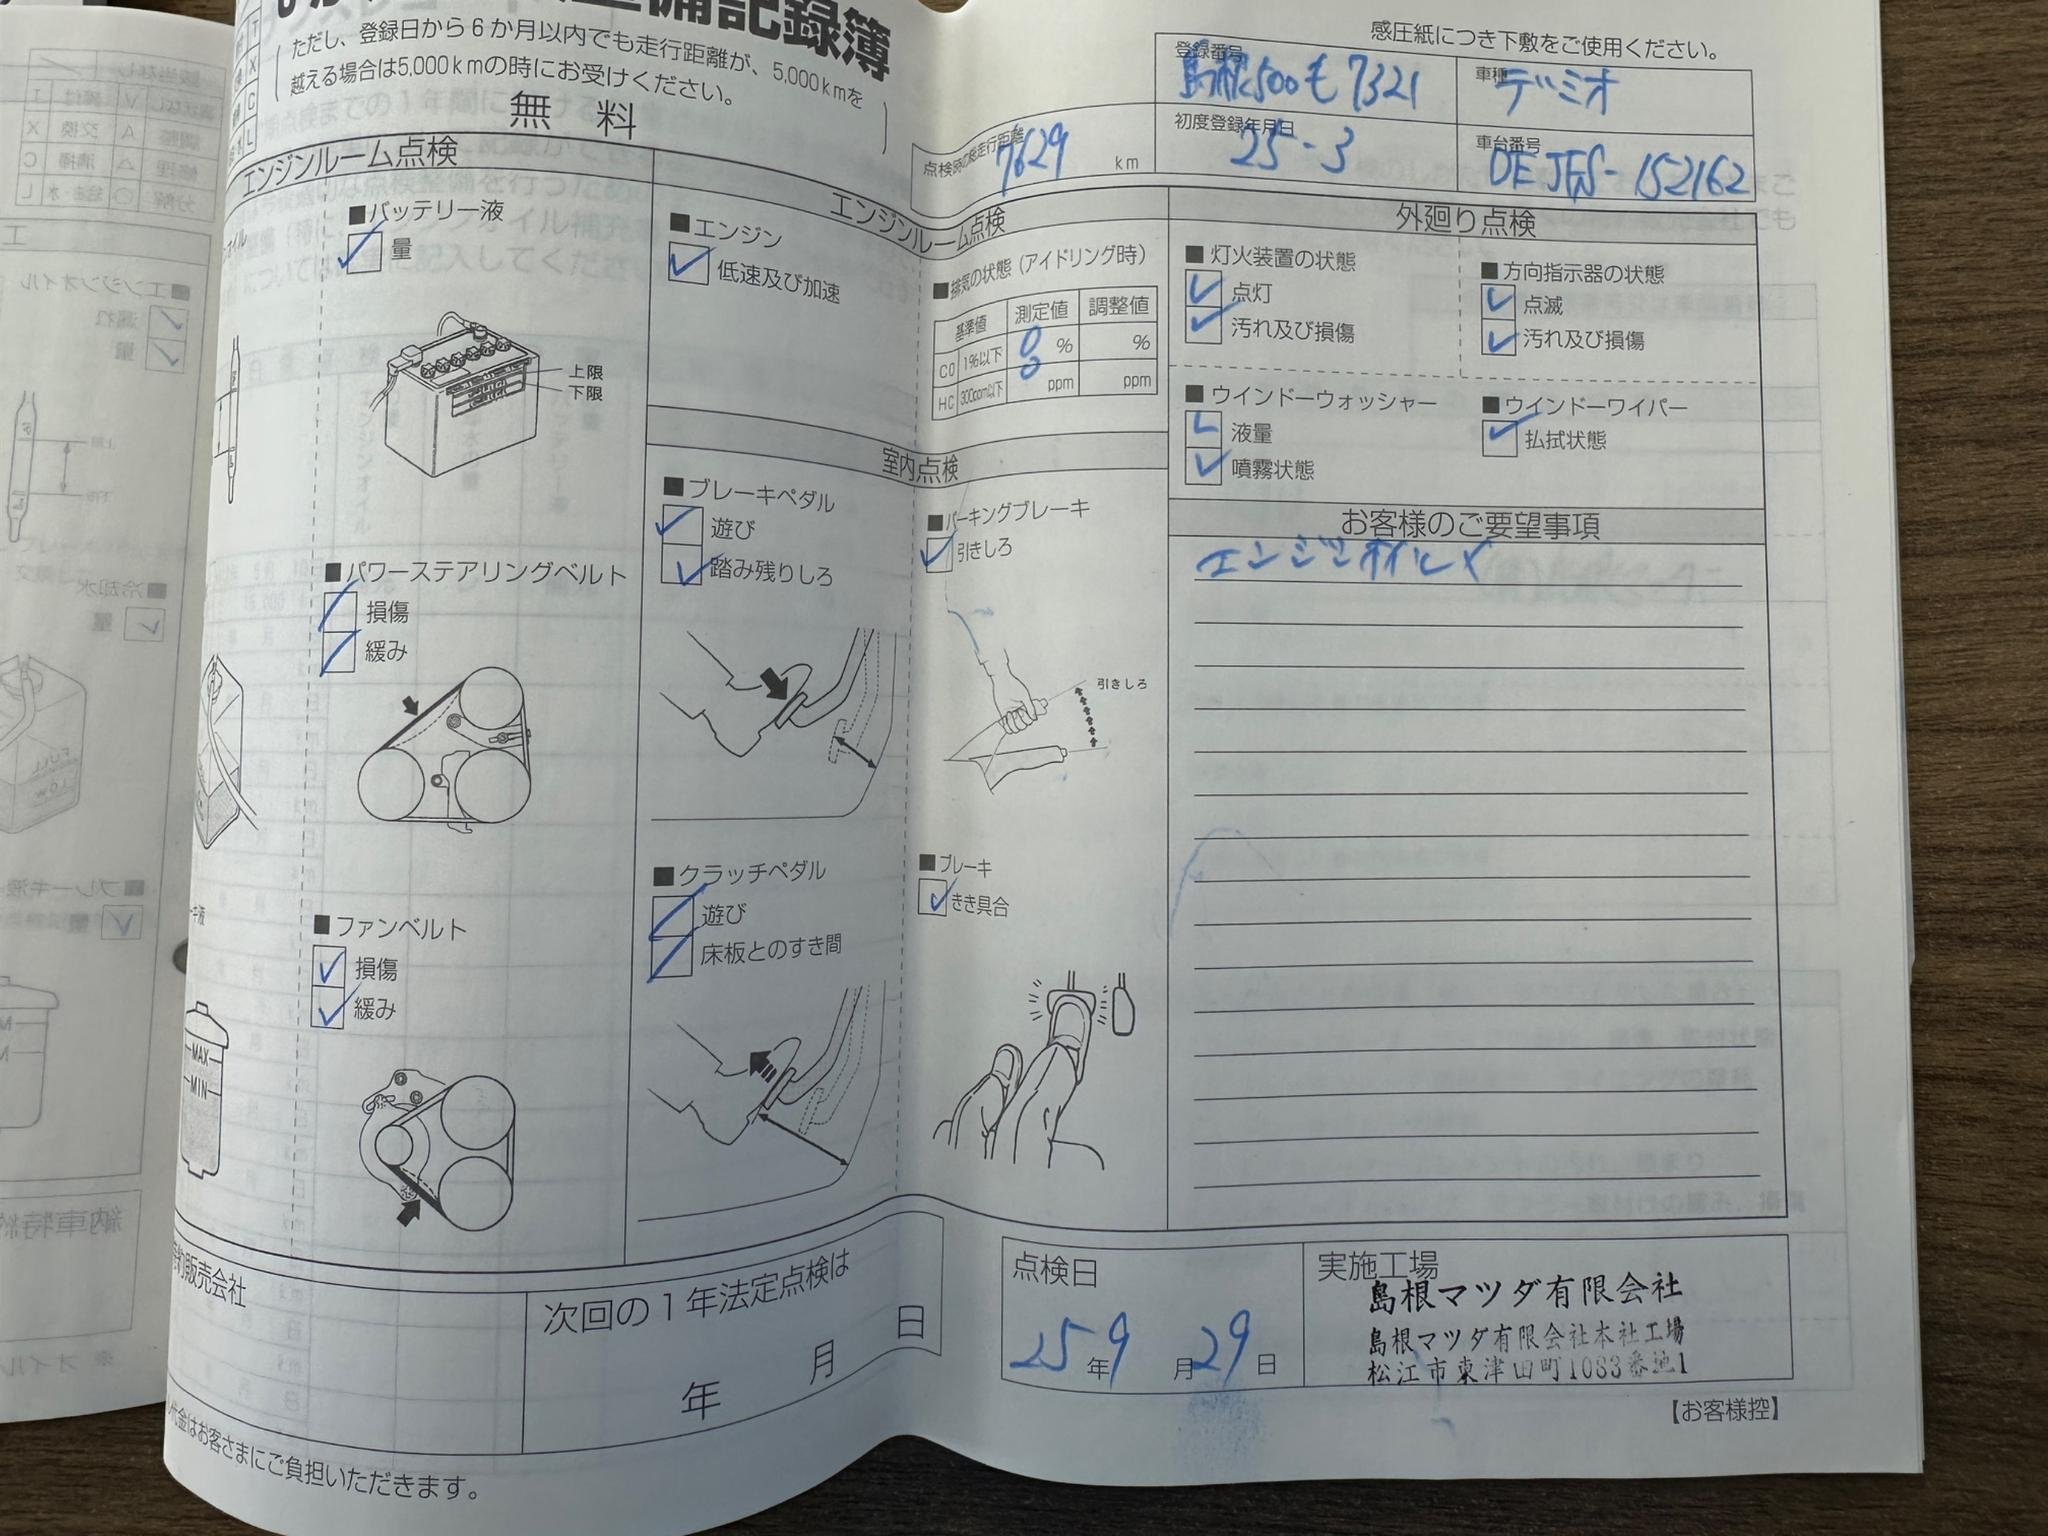 整備記録簿
ただし、登録日から6か月以内でも走行距離が、5,000kmを
越える場合は5,000kmの時にお受けください。
無 料
T
X
C
L
感圧紙につき下敷をご使用ください。
登録番号
島根500も7321
車種
デミオ
点検時の総走行距離
7629 km
初度登録年月日
25-3
車台番号
DEJFS-152162
エンジンルーム点検
■バッテリー液
量
上限
下限
■パワーステアリングベルト
損傷
緩み
■ファンベルト
損傷
緩み
FULL
LOW
MAX
MIN
エンジンルーム点検
■エンジン
低速及び加速
■排気の状態（アイドリング時）
基準値 測定値 調整値
CO 1%以下 0 % %
HC 300ppm以下 0 ppm ppm
室内点検
■ブレーキペダル
遊び
踏み残りしろ
■パーキングブレーキ
引きしろ
引きしろ
■クラッチペダル
遊び
床板とのすき間
■ブレーキ
きき具合
外廻り点検
■灯火装置の状態
点灯
汚れ及び損傷
■方向指示器の状態
点滅
汚れ及び損傷
■ウインドーウォッシャー
液量
噴霧状態
■ウインドーワイパー
払拭状態
お客様のご要望事項
エンジンオイル
販売会社
次回の1年法定点検は
年 月 日
点検日
25年9月29日
実施工場
島根マツダ有限会社
島根マツダ有限会社本社工場
松江市東津田町1083番地1
【お客様控】
代金はお客さまにご負担いただきます。